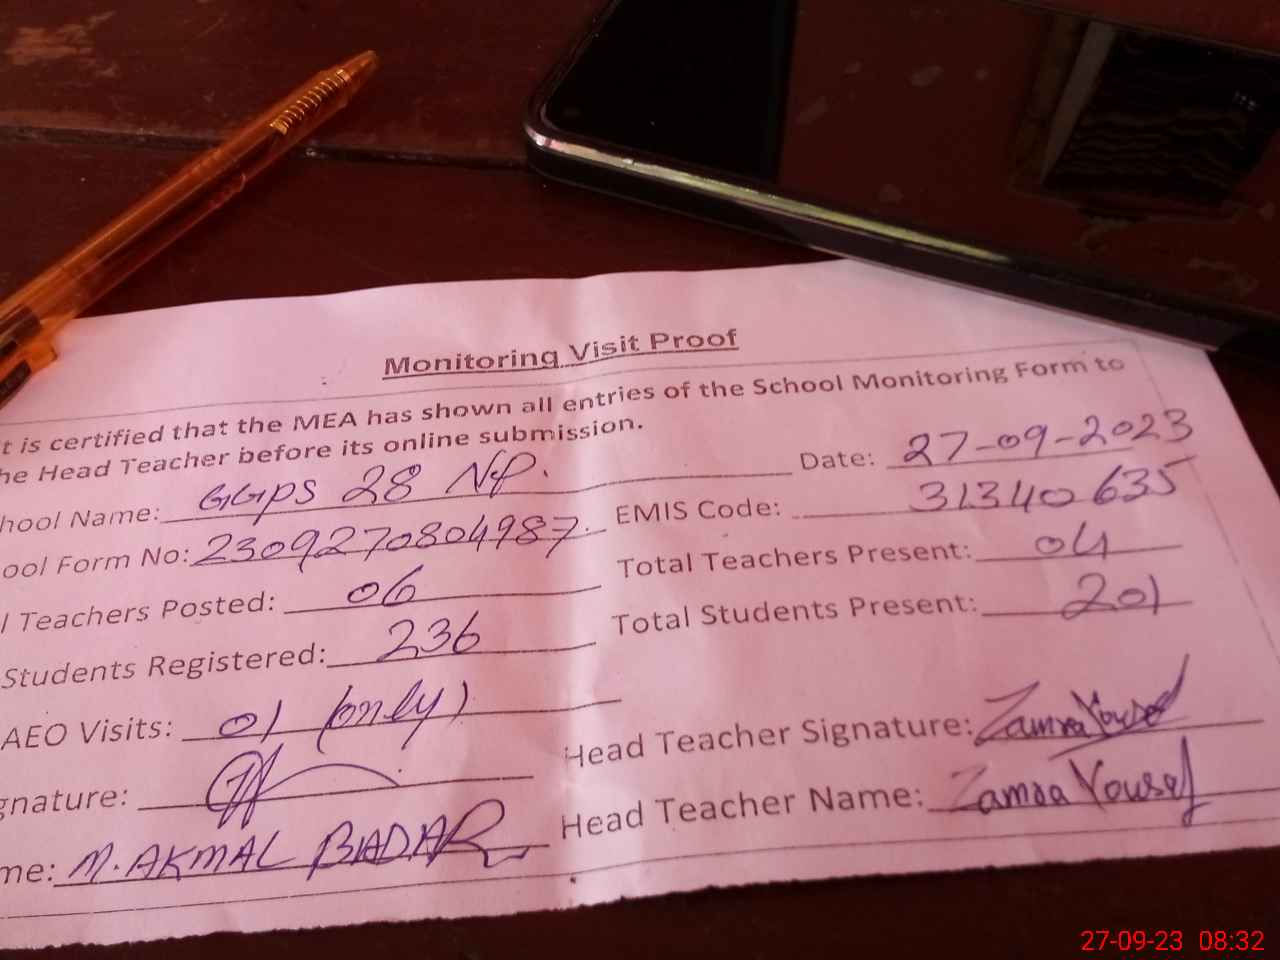 Monitoring Visit Proof
t is certified that the MEA has shown all entries of the School Monitoring Form to
he Head Teacher before its online submission.
hool Name: GGPS 28 NP. Date: 27-09-2023
ool Form No: 2309270804987. EMIS Code: 31340635
l Teachers Posted: 06 Total Teachers Present: 04
Students Registered: 236 Total Students Present: 201
AEO Visits: 01 (only)
gnature: Head Teacher Signature: Zamra Yousaf
me: M. AKMAL BADAR Head Teacher Name: Zamra Yousaf
27-09-23 08:32